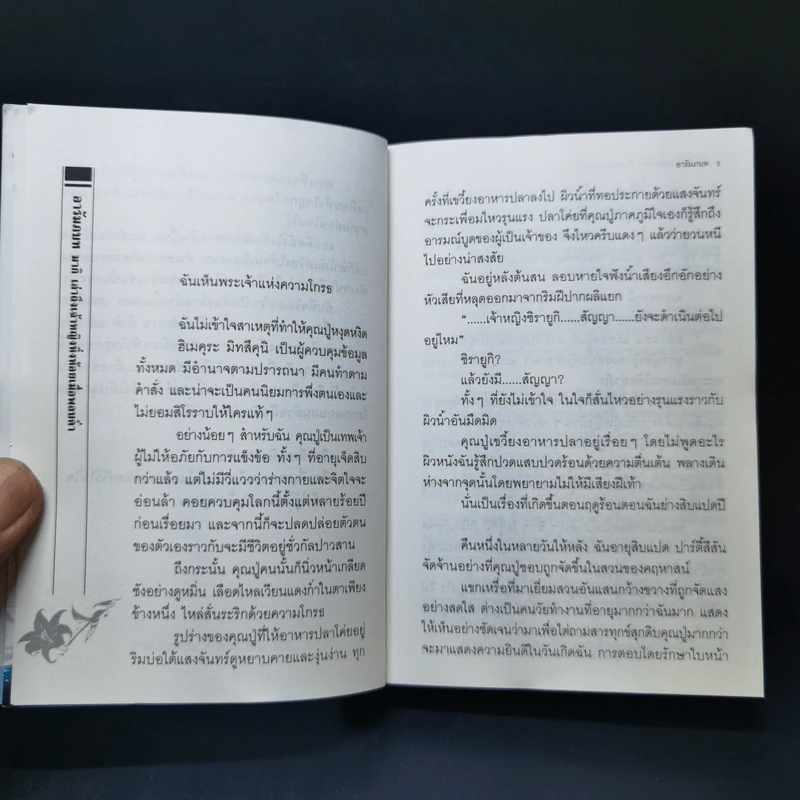 อารัมภบท
ฉันเห็นพระเจ้าแห่งความโกรธ
ฉันไม่เข้าใจสาเหตุที่ทำให้คุณปู่หงุดหงิด
ฮิเมคุระ มิทสึคุนิ เป็นผู้ควบคุมข้อมูล
ทั้งหมด มีอำนาจตามปรารถนา มีคนทำตาม
คำสั่ง และน่าจะเป็นคนนิยมการพึ่งตนเองและ
ไม่ยอมสิโรราบให้ใครแท้ๆ
อย่างน้อยๆ สำหรับฉัน คุณปู่เป็นเทพเจ้า
ผู้ไม่ให้อภัยกับการแข็งข้อ ทั้งๆ ที่อายุเจ็ดสิบ
กว่าแล้ว แต่ไม่มีวี่แววว่าร่างกายและจิตใจจะ
อ่อนล้า คอยควบคุมโลกนี้ตั้งแต่หลายร้อยปี
ก่อนเรื่อยมา และจากนี้ก็จะปลดปล่อยตัวตน
ของตัวเองราวกับจะมีชีวิตอยู่ชั่วกัลปาวสาน
ถึงกระนั้น คุณปู่คนนั้นก็นิ่วหน้าเกลียด
ชังอย่างดูหมิ่น เลือดไหลเวียนแดงก่ำในตาเพียง
ข้างหนึ่ง ไหล่สั่นระริกด้วยความโกรธ
รูปร่างของคุณปู่ที่ให้อาหารปลาโค่ยอยู่
ริมบ่อใต้แสงจันทร์ดูหยาบคายและงุ่นง่าน ทุก
อารัมภบท 5
ครั้งที่เขวี้ยงอาหารปลาลงไป ผิวน้ำที่ทอประกายด้วยแสงจันทร์
จะกระเพื่อมไหวรุนแรง ปลาโค่ยที่คุณปู่ภาคภูมิใจเองก็รู้สึกถึง
อารมณ์บูดของผู้เป็นเจ้าของ จึงไหวครีบแดงๆ แล้วว่ายวนหนี
ไปอย่างน่าสงสัย
ฉันอยู่หลังต้นสน ลอบหายใจฟังน้ำเสียงอึกอักอย่าง
หัวเสียที่หลุดออกมาจากริมฝีปากผลิแยก
“......เจ้าหญิงชิรายูกิ......สัญญา......ยังจะดำเนินต่อไป
อยู่ไหม”
ชิรายูกิ?
แล้วยังมี......สัญญา?
ทั้งๆ ที่ยังไม่เข้าใจ ในใจก็สั่นไหวอย่างรุนแรงราวกับ
ผิวน้ำอันมืดมิด
คุณปู่เขวี้ยงอาหารปลาอยู่เรื่อยๆ โดยไม่พูดอะไร
ผิวหนังฉันรู้สึกปวดแสบปวดร้อนด้วยความตื่นเต้น พลางเดิน
ห่างจากจุดนั้นโดยพยายามไม่ให้มีเสียงฝีเท้า
นั่นเป็นเรื่องที่เกิดขึ้นตอนฤดูร้อนตอนฉันย่างสิบแปดปี
คืนหนึ่งในหลายวันให้หลัง ฉันอายุสิบแปด ปาร์ตี้สีสัน
จัดจ้านอย่างที่คุณปู่ชอบถูกจัดขึ้นในสวนของคฤหาสน์
แขกเหรื่อที่มาเยี่ยมสวนอันแสนกว้างขวางที่ถูกจัดแสง
อย่างสดใส ต่างเป็นคนวัยทำงานที่อายุมากกว่าฉันมาก แสดง
ให้เห็นอย่างชัดเจนว่ามาเพื่อไต่ถามสารทุกข์สุกดิบคุณปู่มากกว่า
จะมาแสดงความยินดีในวันเกิดฉัน การตอบโดยรักษาใบหน้า